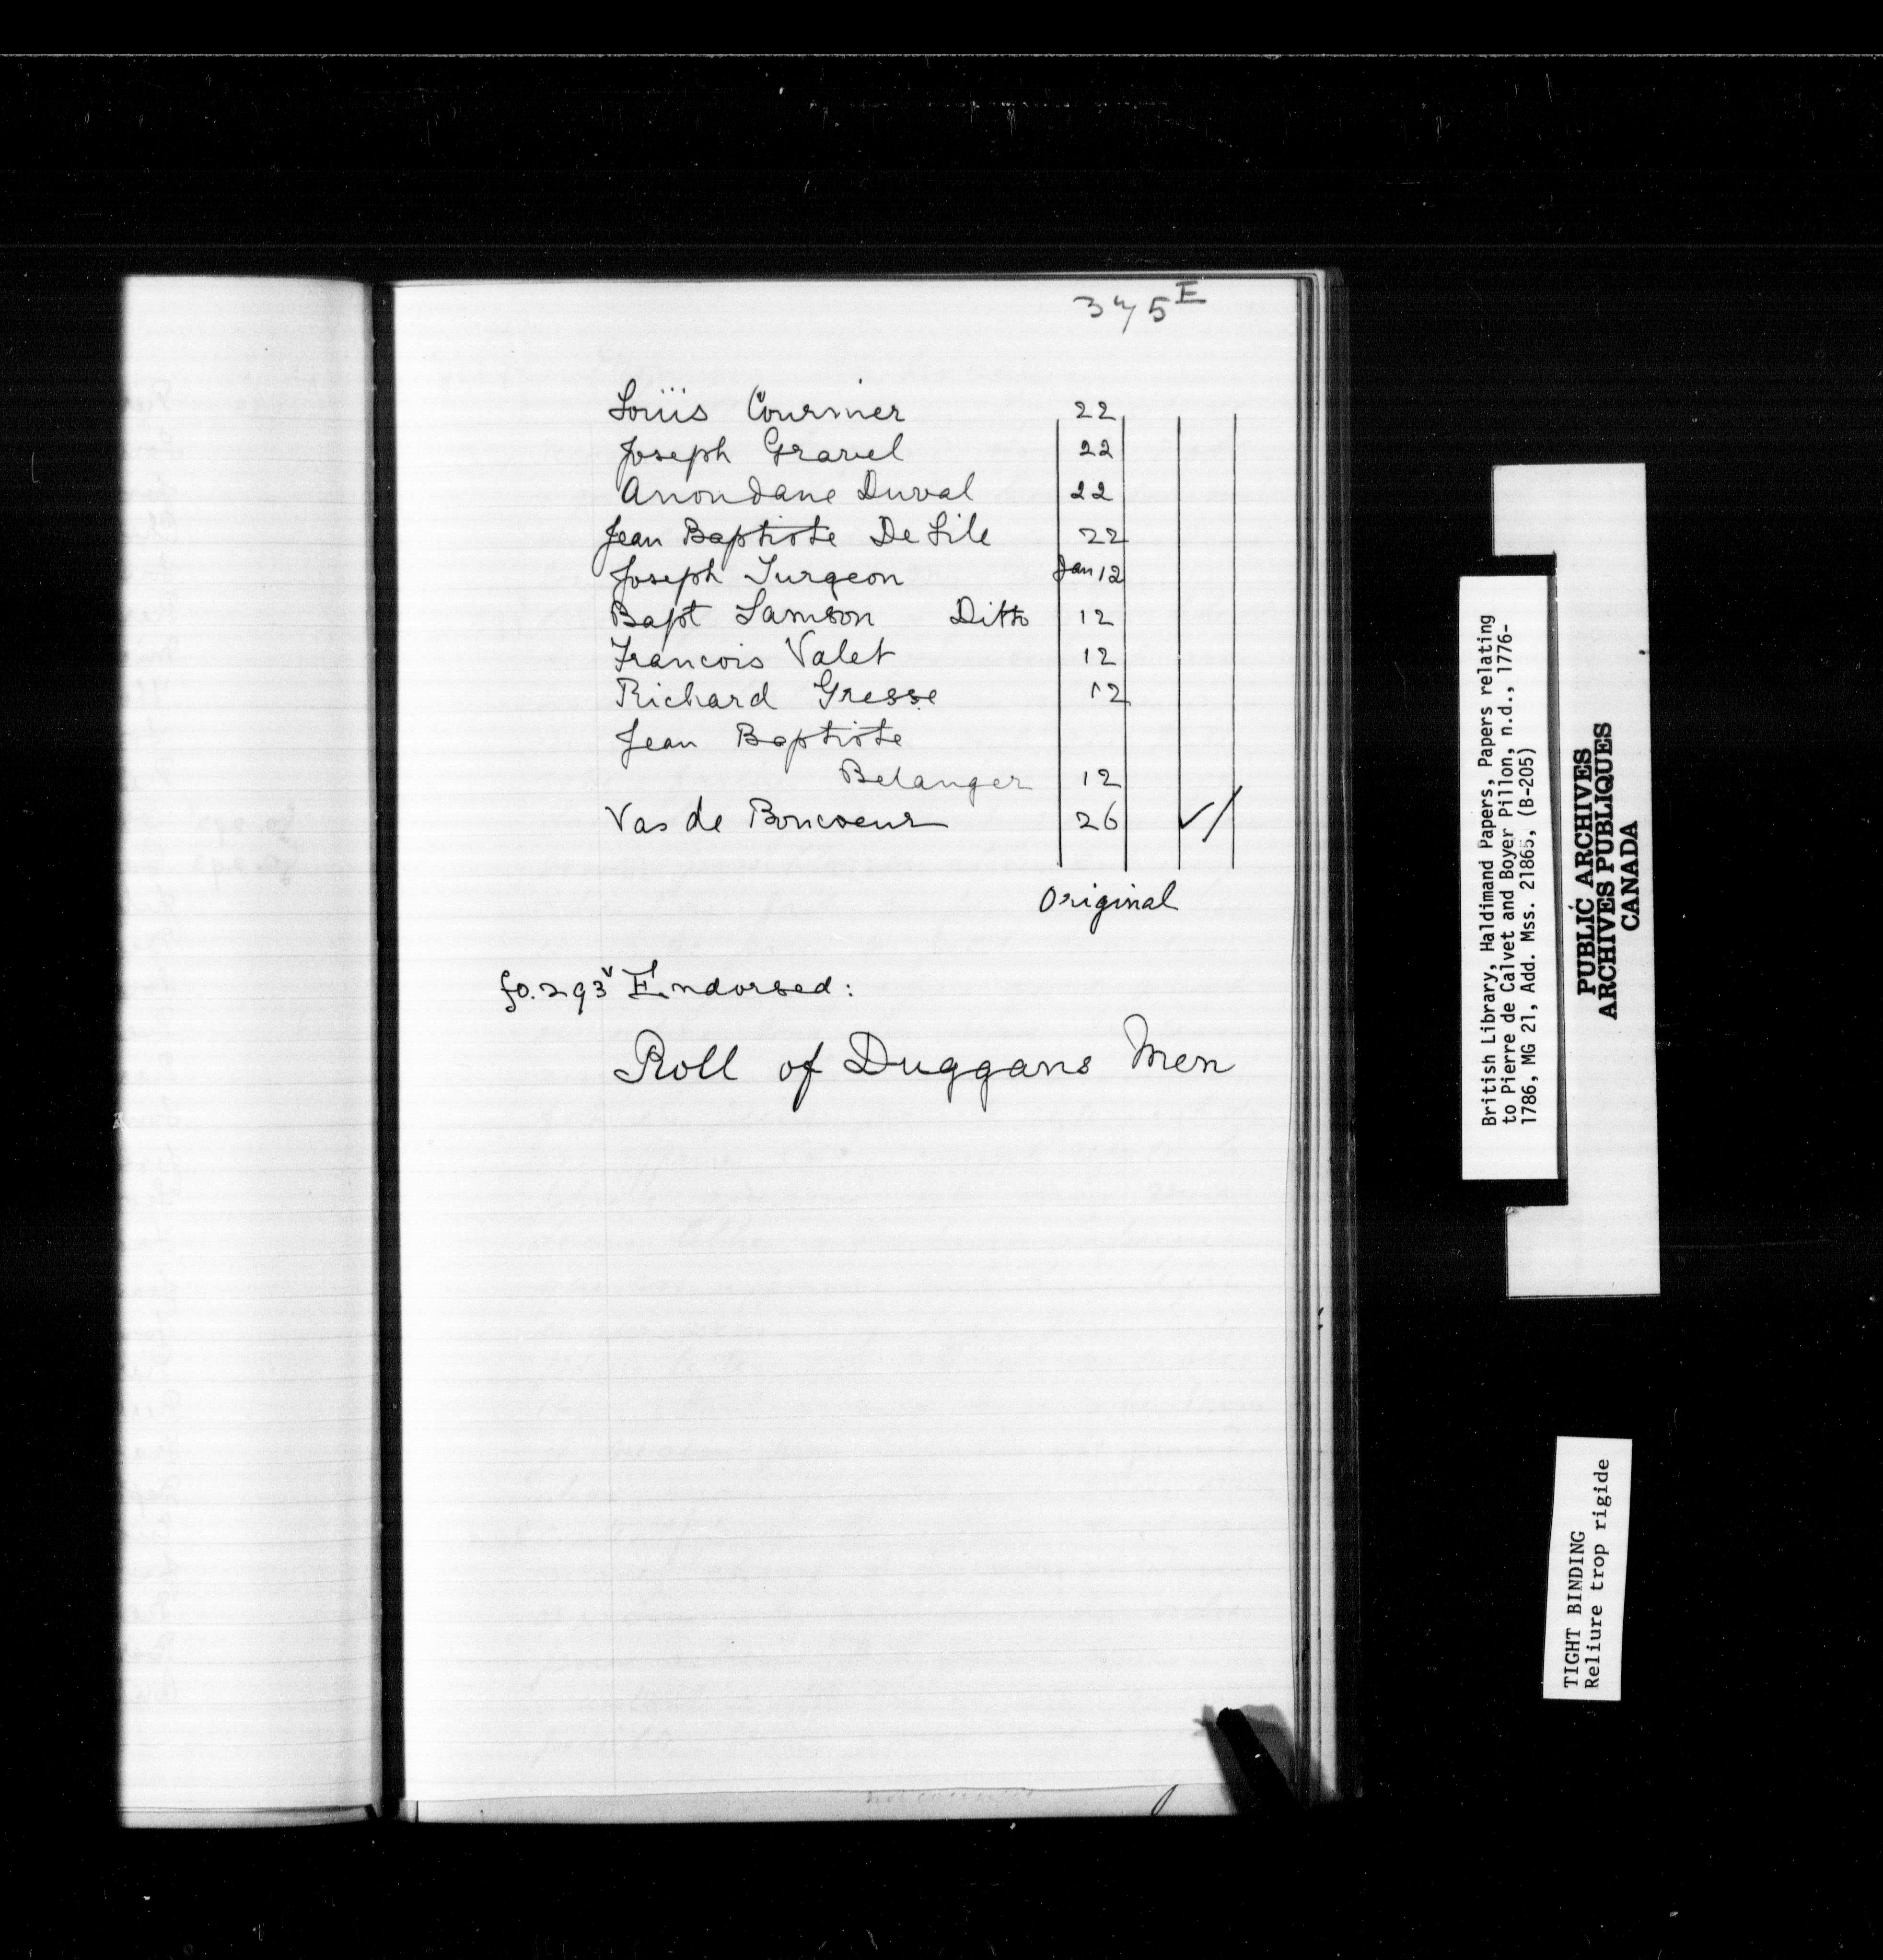 375E
Loüis Courrier 22
Joseph Gravel 22
Anondane Duval 22
Jean Baptiste De Lile 22
Joseph Turgeon Jan 12
Bapt Samson Ditto 12
Francois Valet 12
Richard Gresse 12
Jean Baptiste
Belanger 12
Vas de Boncoeur 26
Original
fo. 293v Endorsed:
Roll of Duggans Men
British Library, Haldimand Papers, Papers relating
to Pierre de Calvet and Boyer Pillon, n.d., 1776-
1786, MG 21, Add. Mss. 21865, (B-205)
PUBLIC ARCHIVES
ARCHIVES PUBLIQUES
CANADA
TIGHT BINDING
Reliure trop rigide